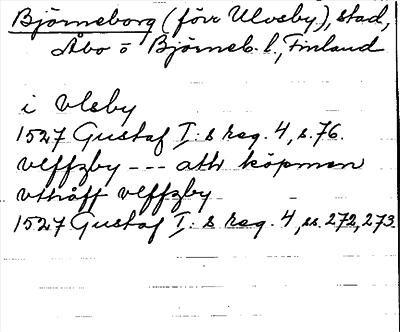 Björneborg (förr Ulvsby), stad,
Åbo o Björneb. l., Finland
i vlsby
1527 Gustaf I:s reg. 4, s. 76.
vlffzby --- att köpmen
vthåff vlffzby
1527 Gustaf I:s reg. 4, ss. 272, 273.